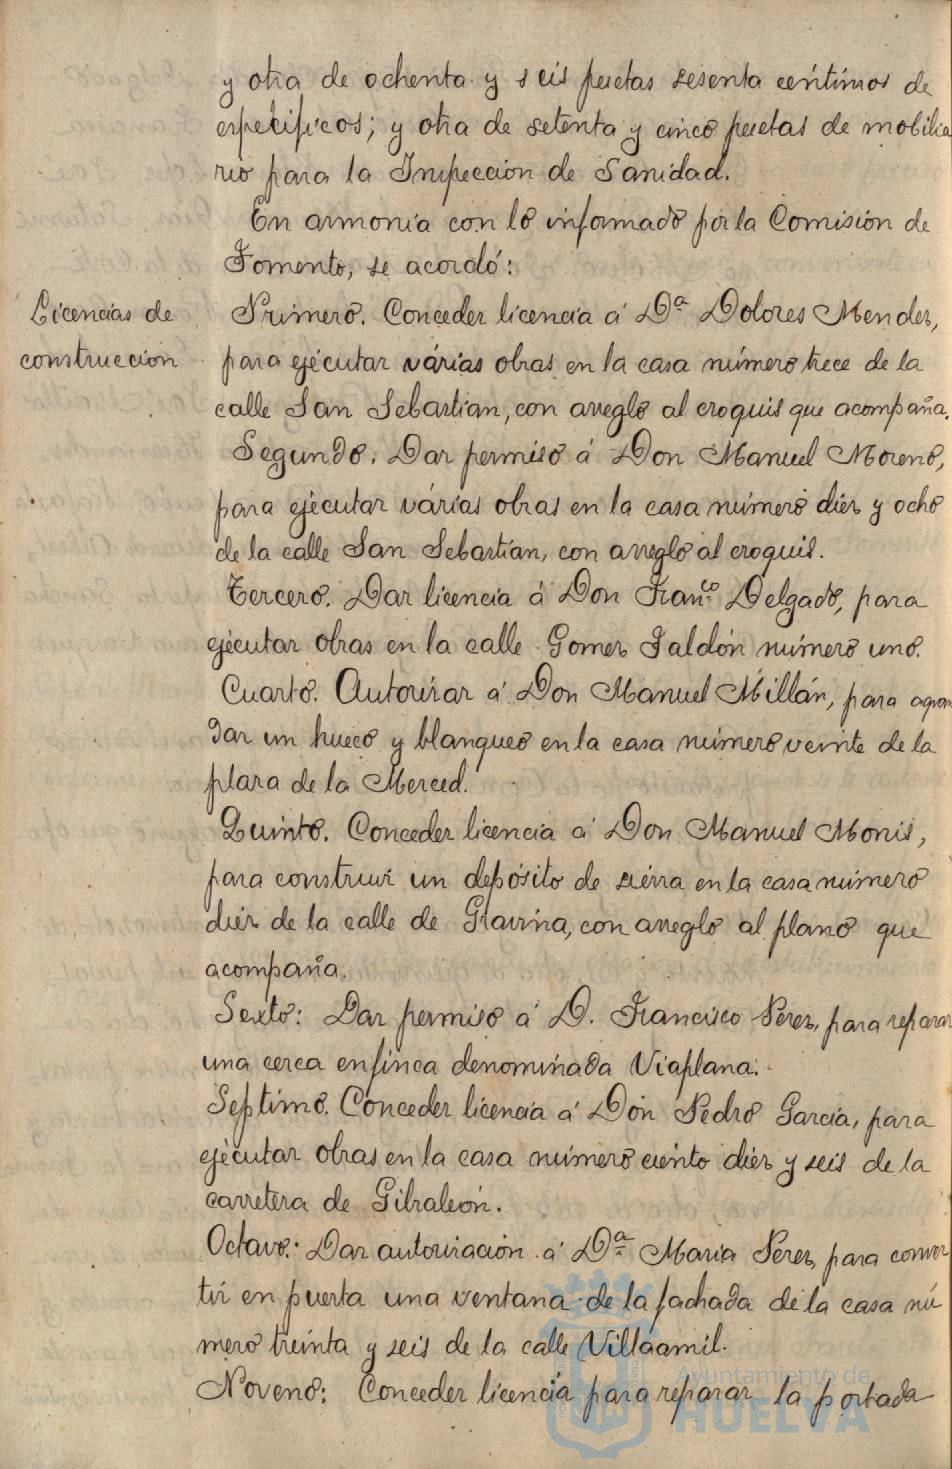 y otra de ochenta y seis pesetas sesenta céntimos de
específicos; y otra de setenta y cinco pesetas de mobilia
rio para la Inspección de Sanidad.
En armonía con lo informado por la Comisión de
Fomento, se acordó:
Licencias de
construcción
Primero. Conceder licencia á Dª Dolores Mendez,
para ejécutar várias obras en la casa número trece de la
calle San Sebastían, con arreglo al croquis que acompaña.
Segundo. Dar permiso á Don Manuel Moreno,
para ejécutar várias obras en la casa número diéz y ocho
de la calle San Sebastían, con arreglo al croquis.
Tercero. Dar licencia á Don Franco. Delgado, para
ejécutar obras en la calle Gomez Jaldón número uno.
Cuarto. Autorizar á Don Manuel Millán, para agran
dar un hueco y blanqueo en la casa número veinte de la
plaza de la Merced.
Quinto. Conceder licencia á Don Manuel Monis,
para construir un depósito de sierra en la casa número
diéz de la calle de Gravina, con arreglo al plano que
acompaña.
Sexto: Dar permiso á D. Francisco Perez, para reparar
una cerca en finca denominada Viaplana.
Septimo. Conceder licencia á Don Pedro García, para
ejécutar obras en la casa número ciento diéz y seis de la
carretera de Gibraleón.
Octavo: Dar autorización á Dª María Perez, para conver
tir en puerta una ventana de la fachada de la casa nú
mero treinta y seis de la calle Villáamil.
Noveno: Conceder licencia para reparar la portada
Ayuntamiento de
HUELVA